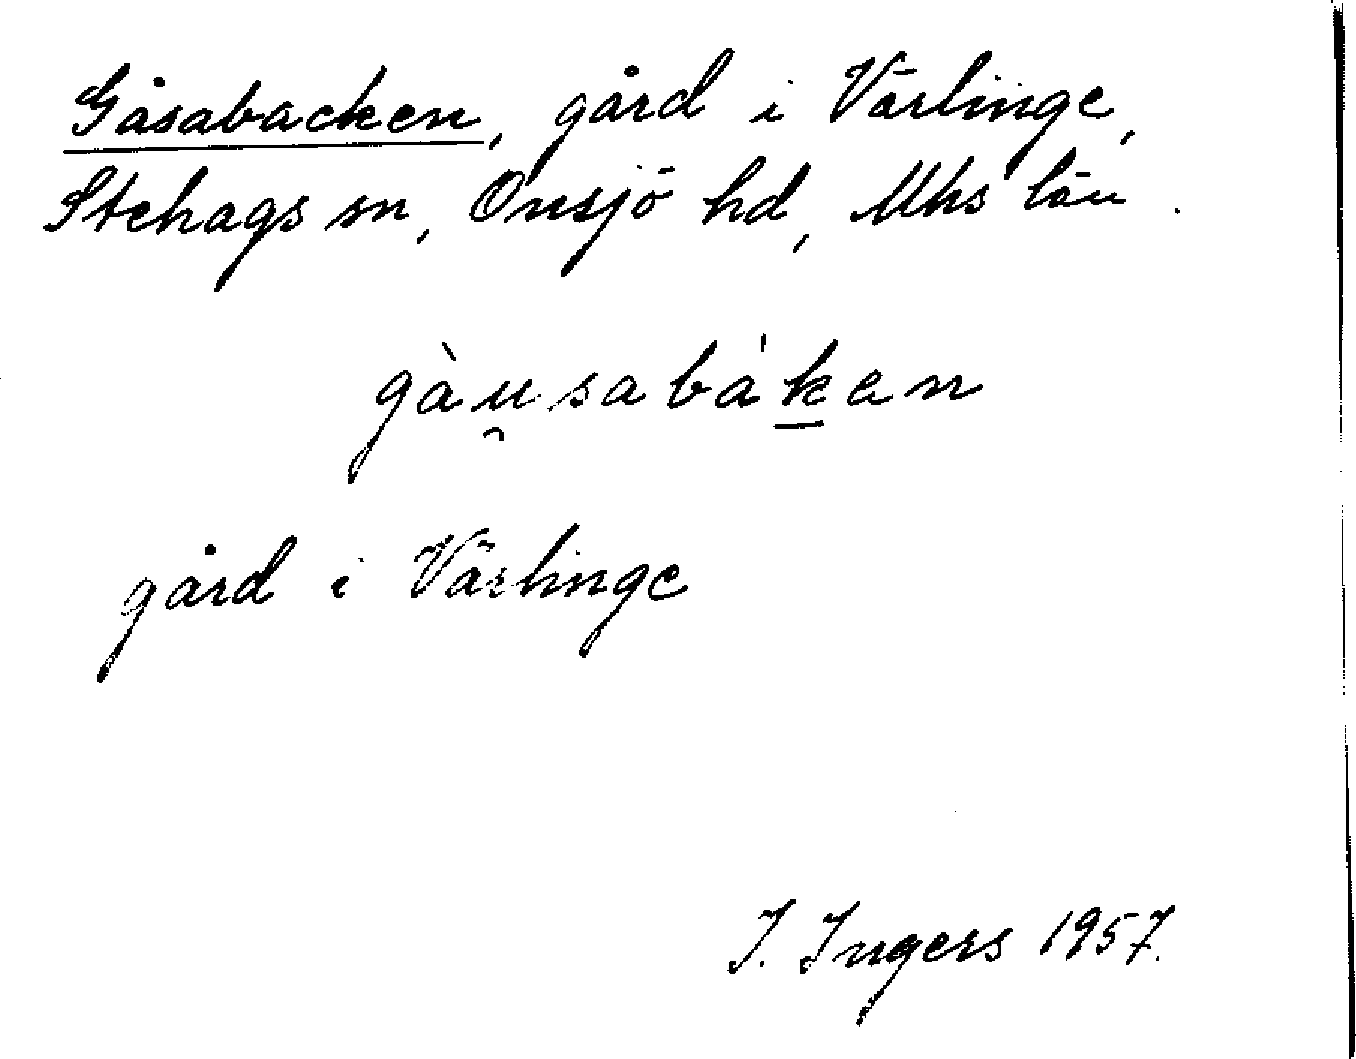 Gåsabacken, gård i Värlinge,
Stehags sn, Onsjö hd, Mhs län.
gàu̯sabá'k̲en
gård i Värlinge
I. Ingers 1957.